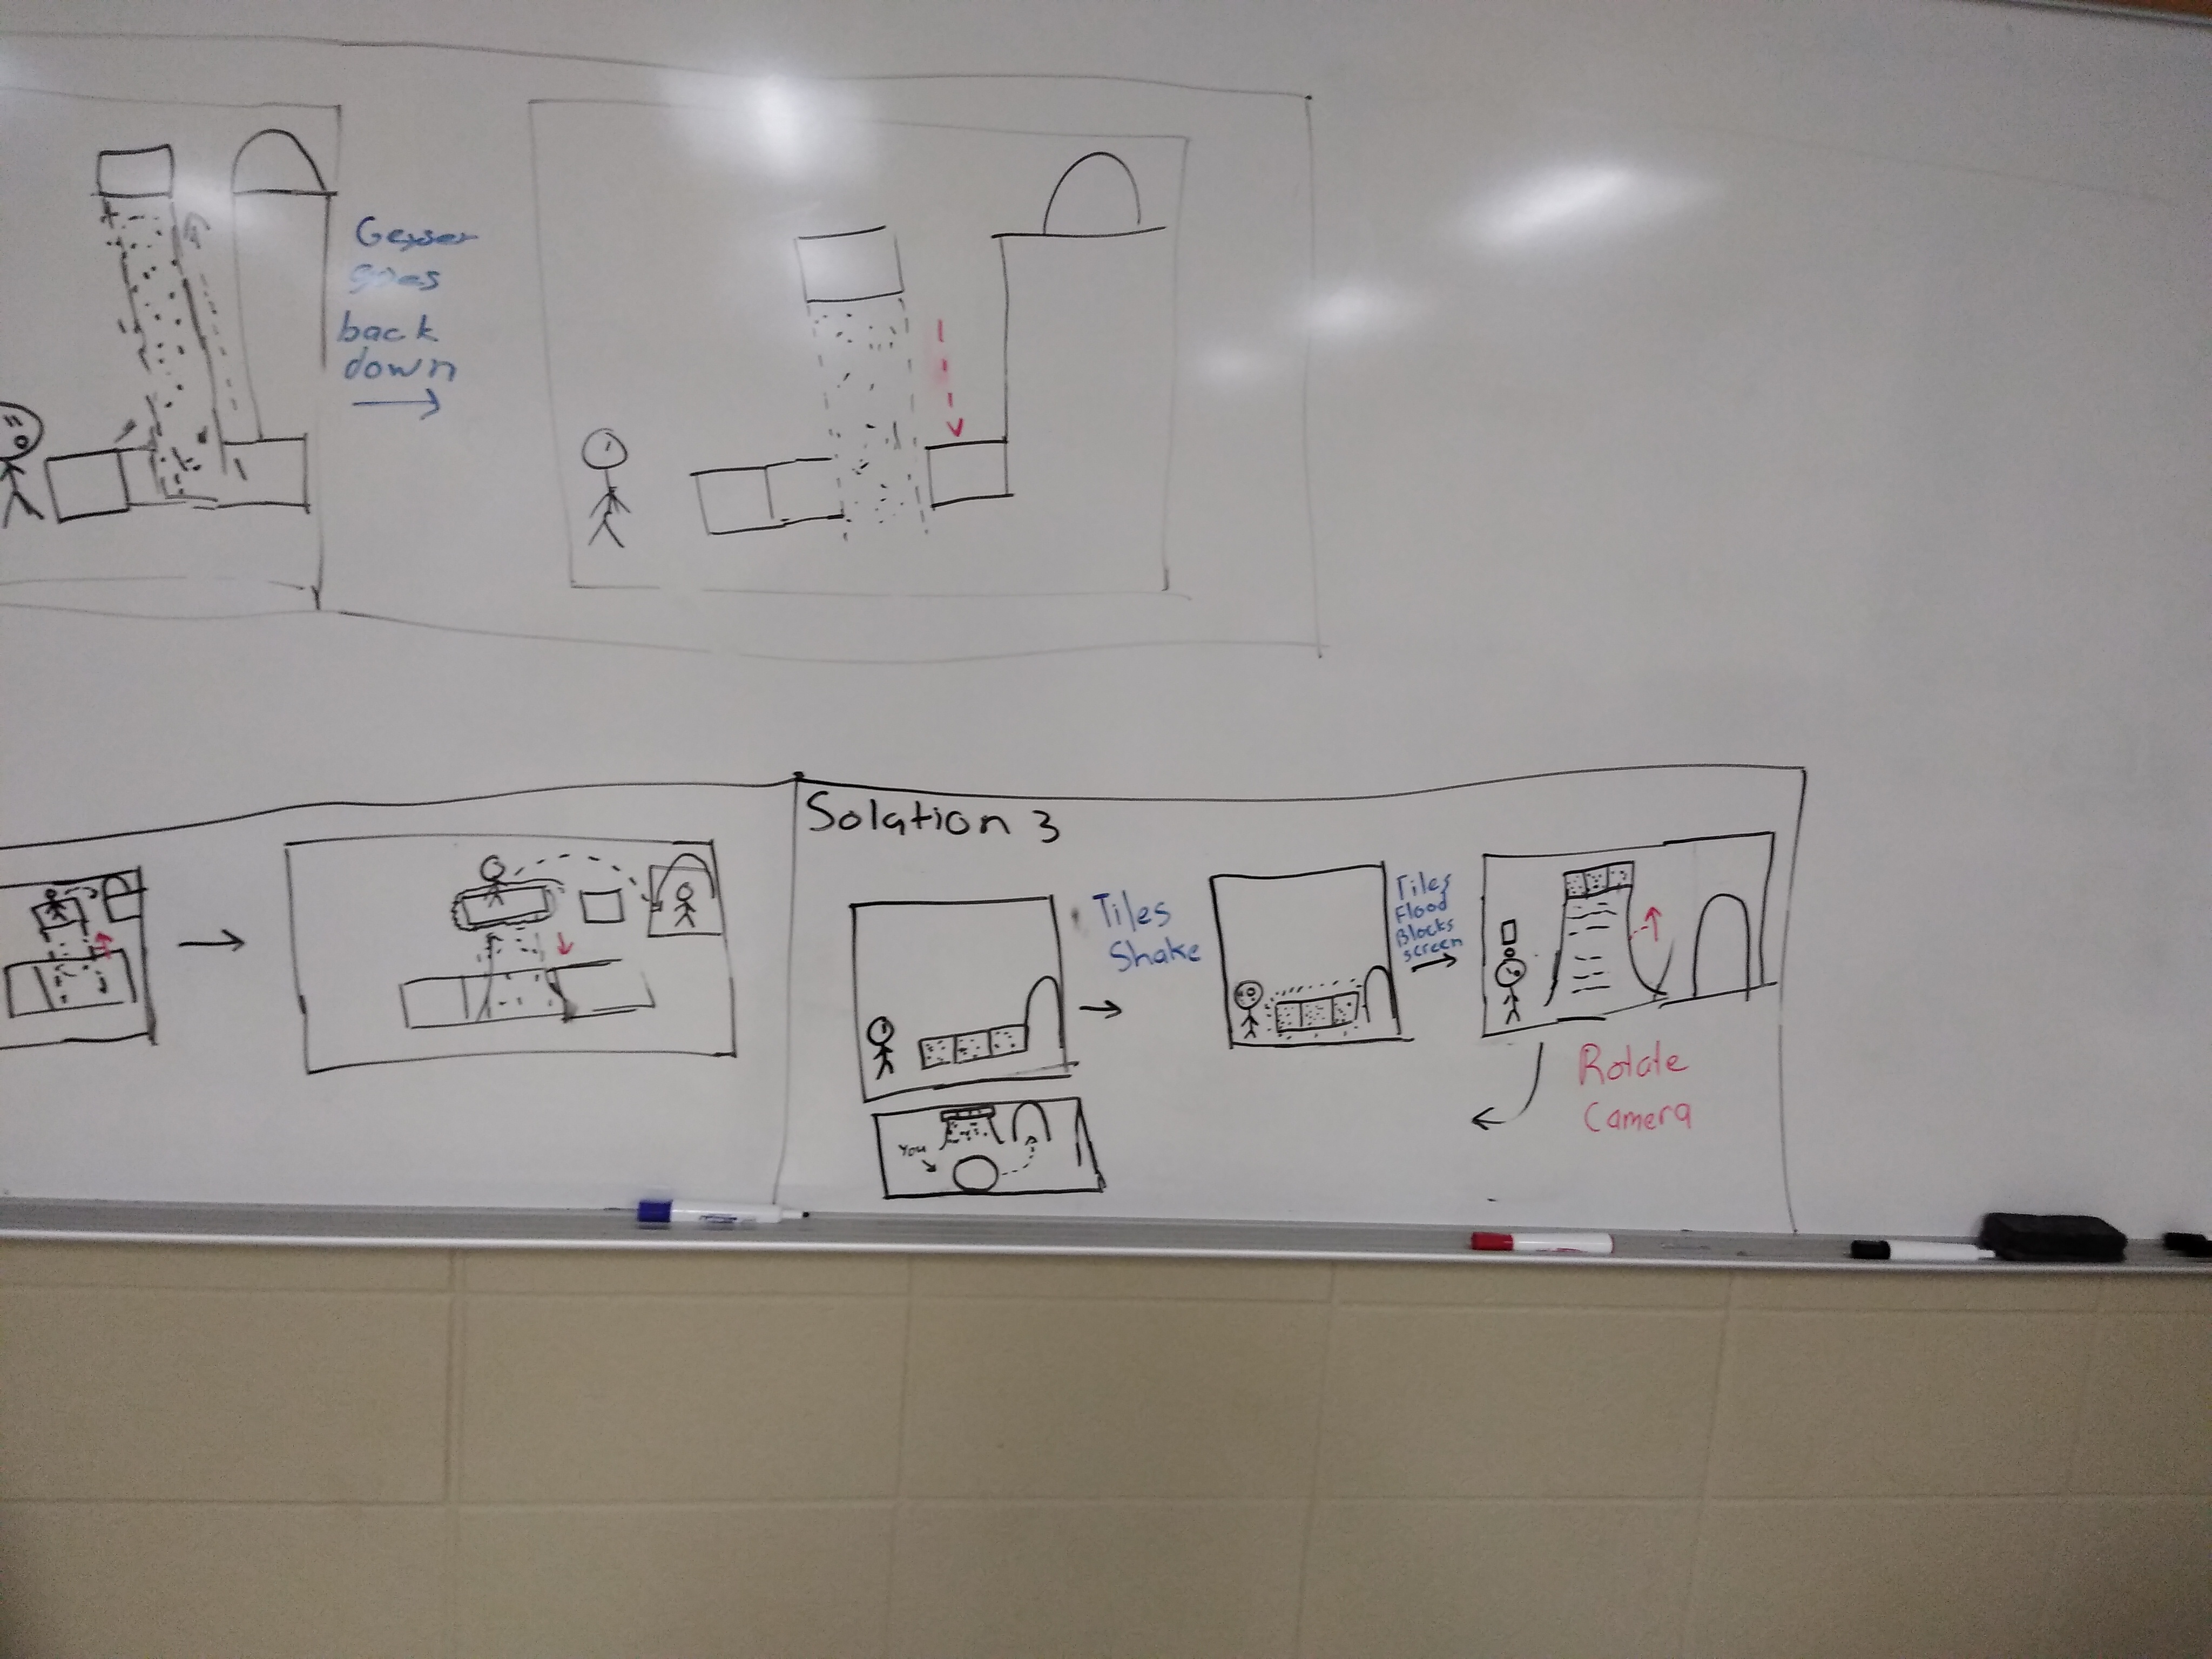 Geyser
goes
back
down
Solation 3
Tiles
Shake
Tiles
Flood
Blocks
screen
Rotate
Camera
You